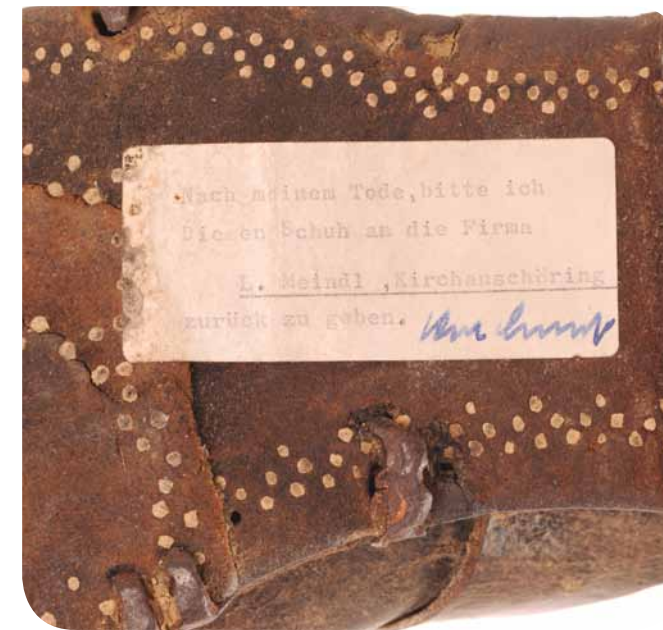 Nach meinem Tode,bitte ich
Diesen Schuh an die Firma
L. Meindl ,Kirchanschöring
zurück zu geben.